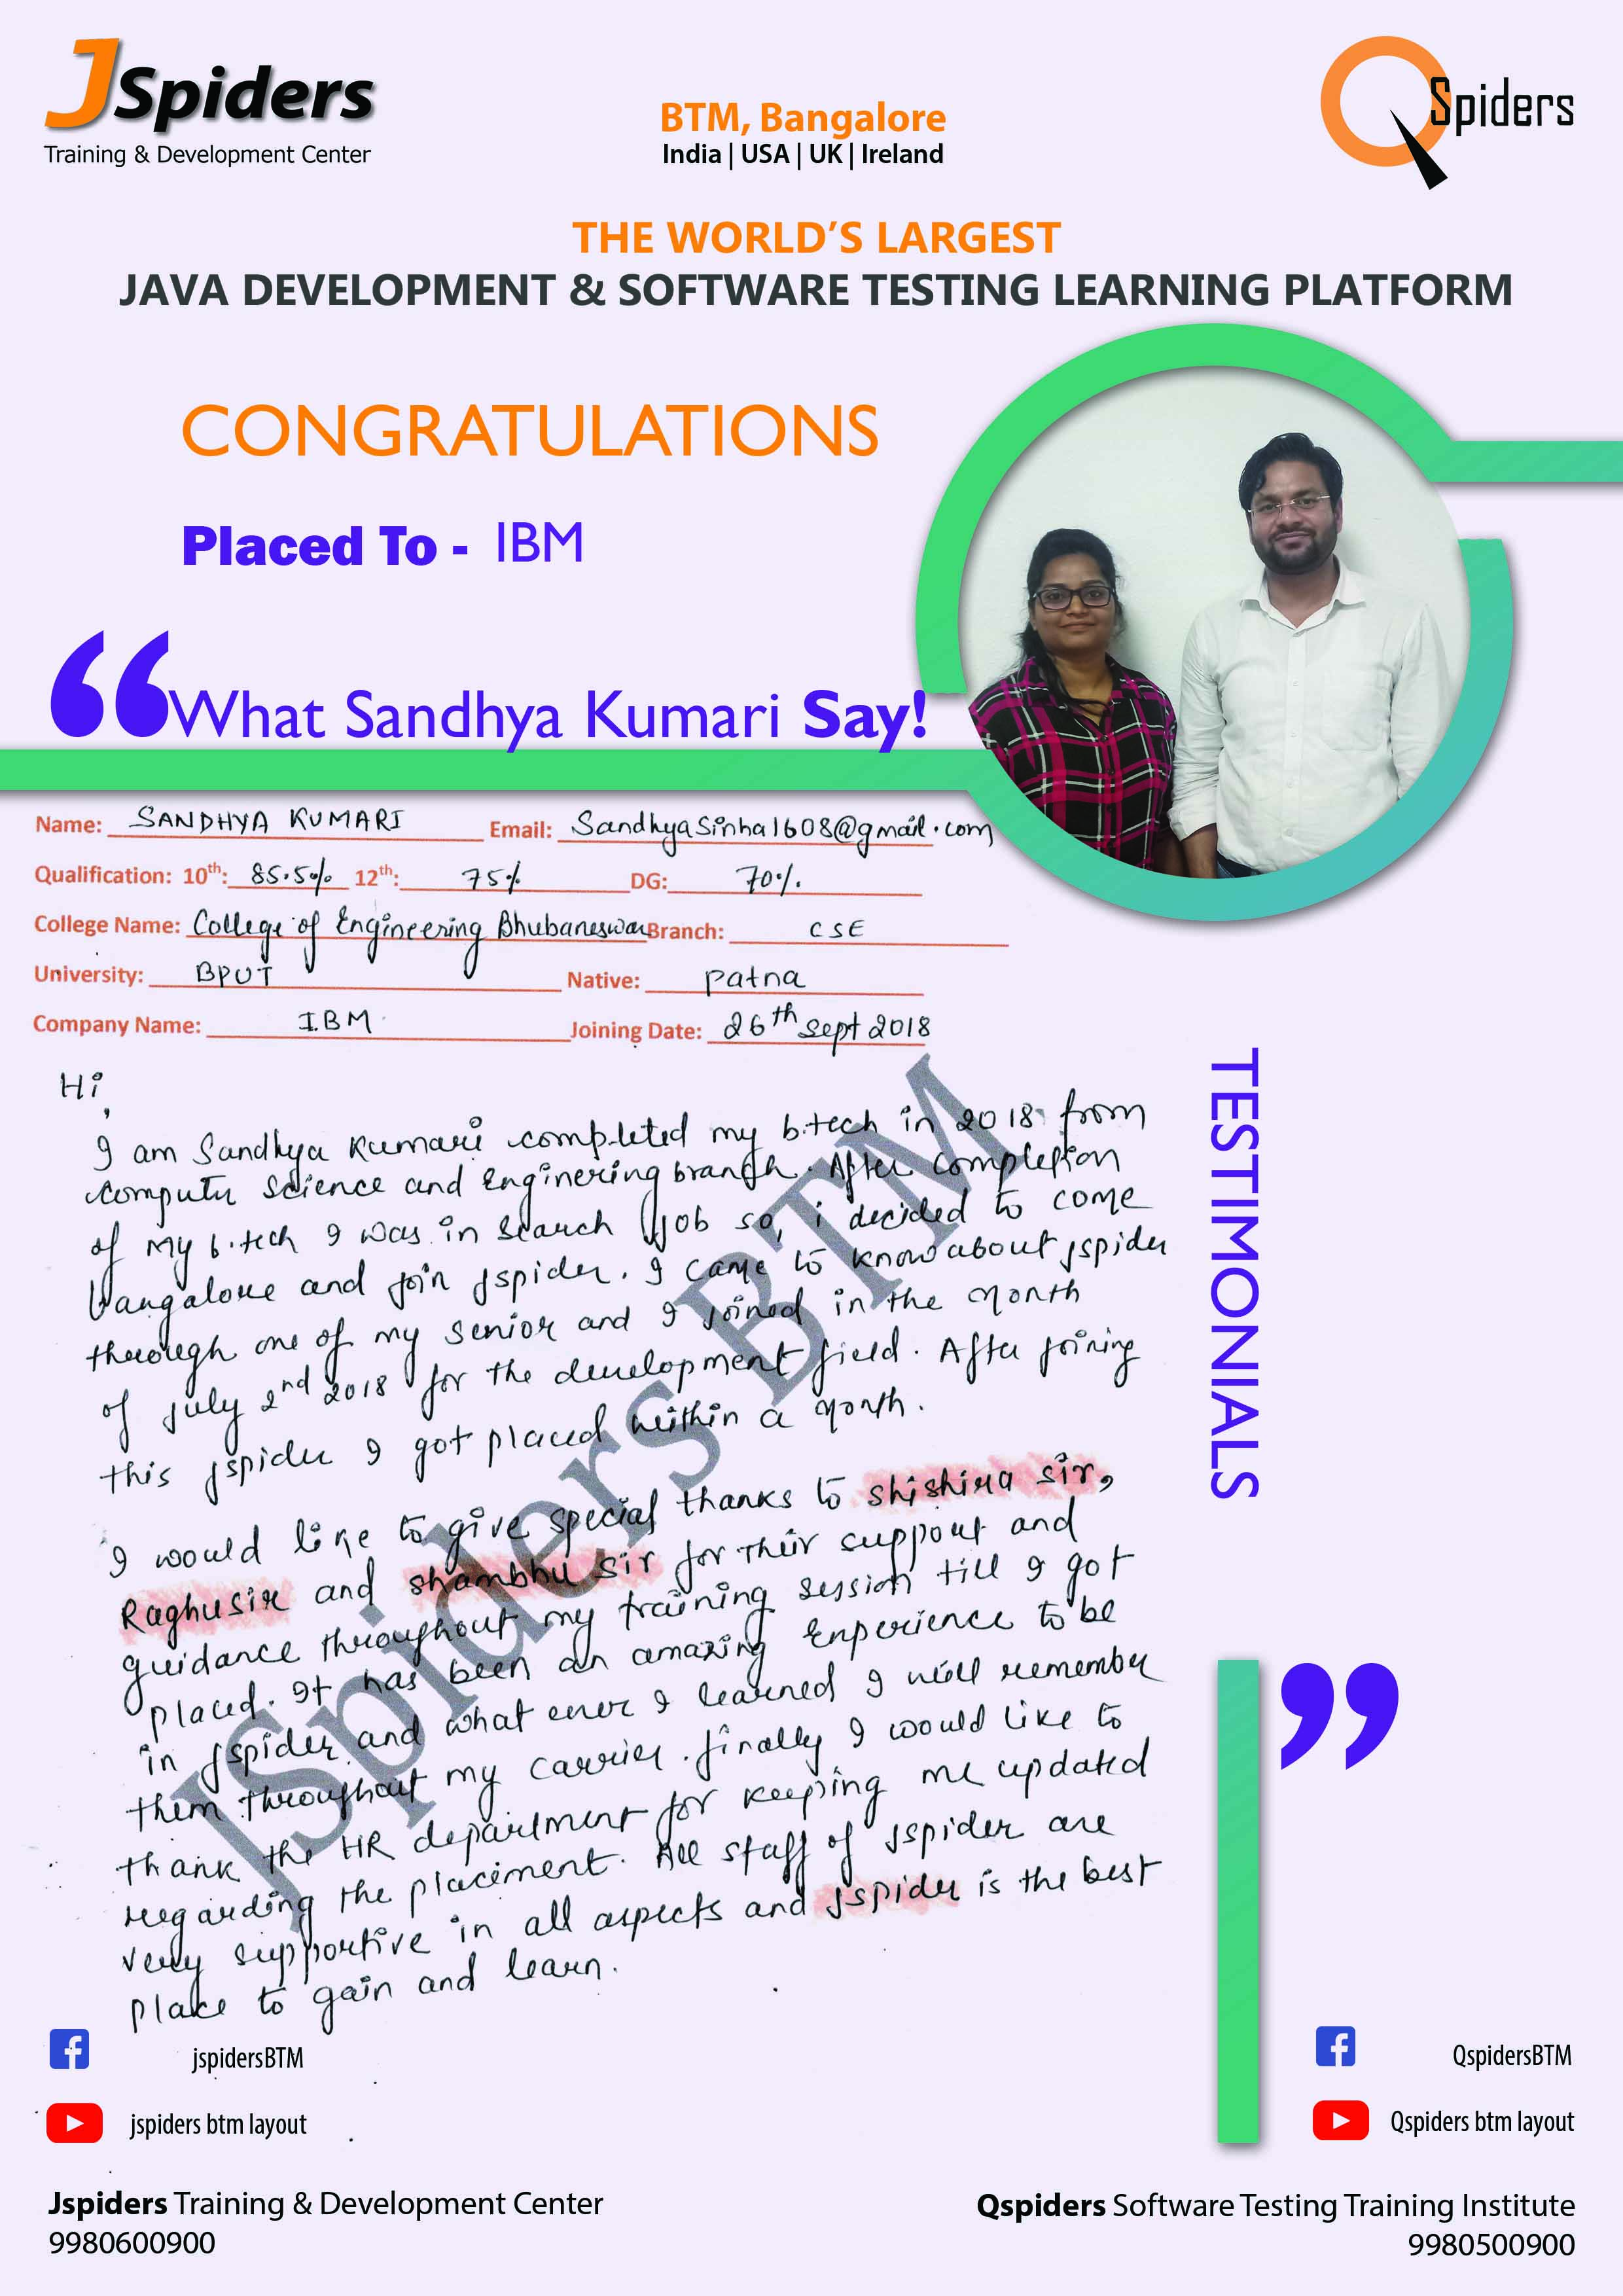 JSpiders
Training & Development Center
BTM, Bangalore
India | USA | UK | Ireland
QSpiders
THE WORLD'S LARGEST
JAVA DEVELOPMENT & SOFTWARE TESTING LEARNING PLATFORM
CONGRATULATIONS
Placed To - IBM
“What Sandhya Kumari Say!
Name: SANDHYA KUMARI Email: Sandhyasinha1608@gmail.com
Qualification: 10th: 85.5% 12th: 75% DG: 70%
College Name: College of Engineering Bhubaneswar Branch: CSE
University: BPUT Native: Patna
Company Name: IBM Joining Date: 26th sept 2018
Hi,
I am Sandhya Kumari completed my b.tech in 2018 from
computer science and Enginering branch. After completion
of my b.tech I was in search job so, i decided to come
bangalore and join jspider. I came to know about jspider
through one of my senior and I joined in the month
of july 2nd 2018 for the development field. After joining
this jspider I got placed within a month.
I would like to give special thanks to shishira sir,
Raghu sir and shambhu sir for their support and
guidance throughout my training session till I got
placed. It has been an amazing Experience to be
in jspider and what ever I learned I will remember
them throughout my carrier. finally I would like to
thank the HR department for keeping me updated
regarding the placiment. All staff of jspider are
very supportive in all aspects and jspider is the best
place to gain and learn.
JSpiders BTM
TESTIMONIALS
”
jspidersBTM
jspiders btm layout
QspidersBTM
Qspiders btm layout
Jspiders Training & Development Center
9980600900
Qspiders Software Testing Training Institute
9980500900